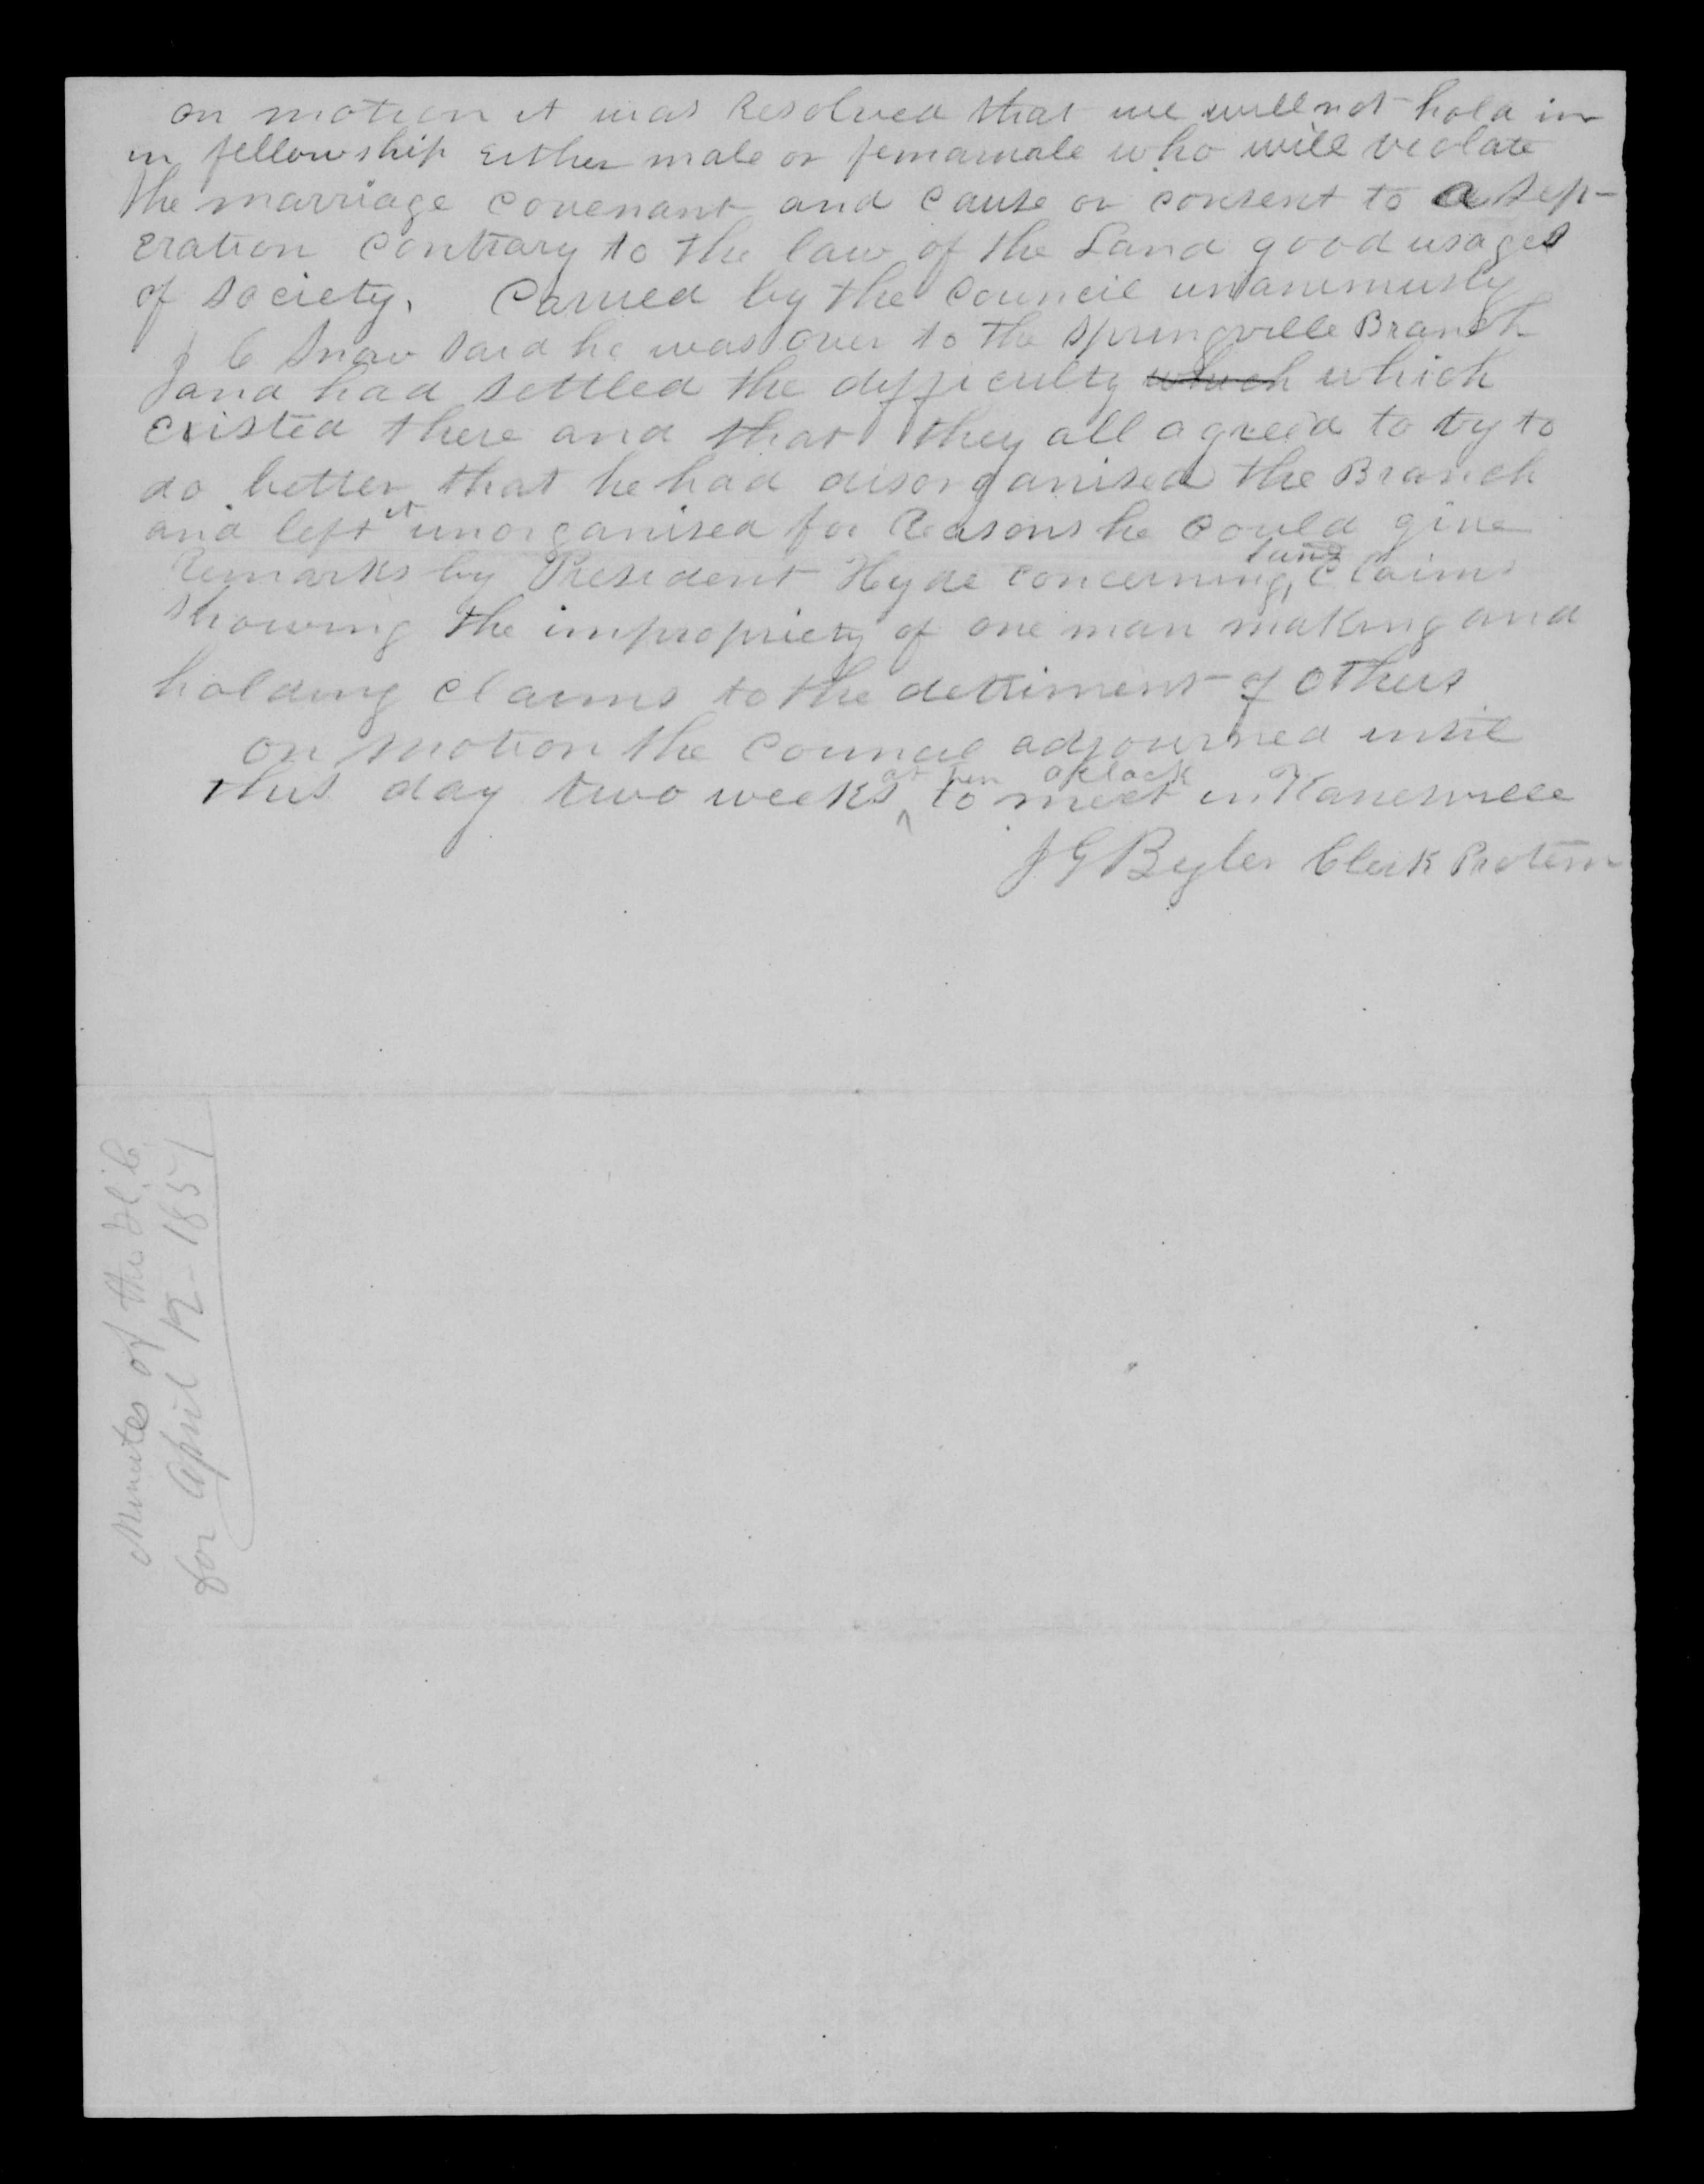 on motion it was Resolved that we will not hold in
in fellowship Either male or femamale who will violate
the marriage covenant and cause or consent to a sep-
eration contrary to the law of the Land good usages
of society. Carried by the council unanimusly
J C Snow said he was over to the Springville Branch
and had settled the difficulty which which
existed there and that they all agreed to try to
do better, that he had disorganised the Branch
and left it unorganised for Reasons he could give
Remarks by President Hyde concerning land claims
showing the impropriety of one man making and
holding claims to the detriment of others
on motion the council adjourned until
this day two weeks at ten oclock to meet in Kanesville
J G Bigler Clerk Protem
Minutes of the H. C.
for April 19 - 1851